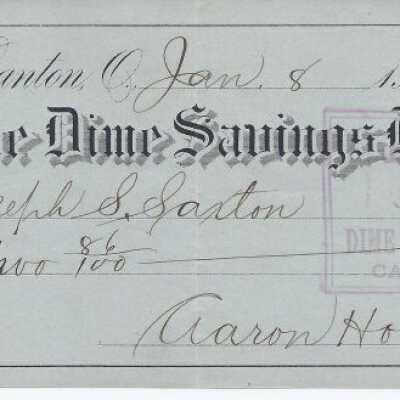 anton, O. Jan. 8 1
e Dime Savings
eph S. Saxton
wo 86/100
DIME
CA
Aaron Ho